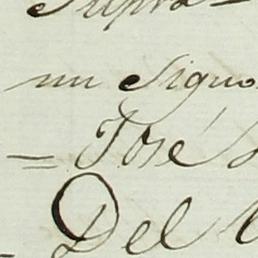 Supra
mi Signo
= José
Del